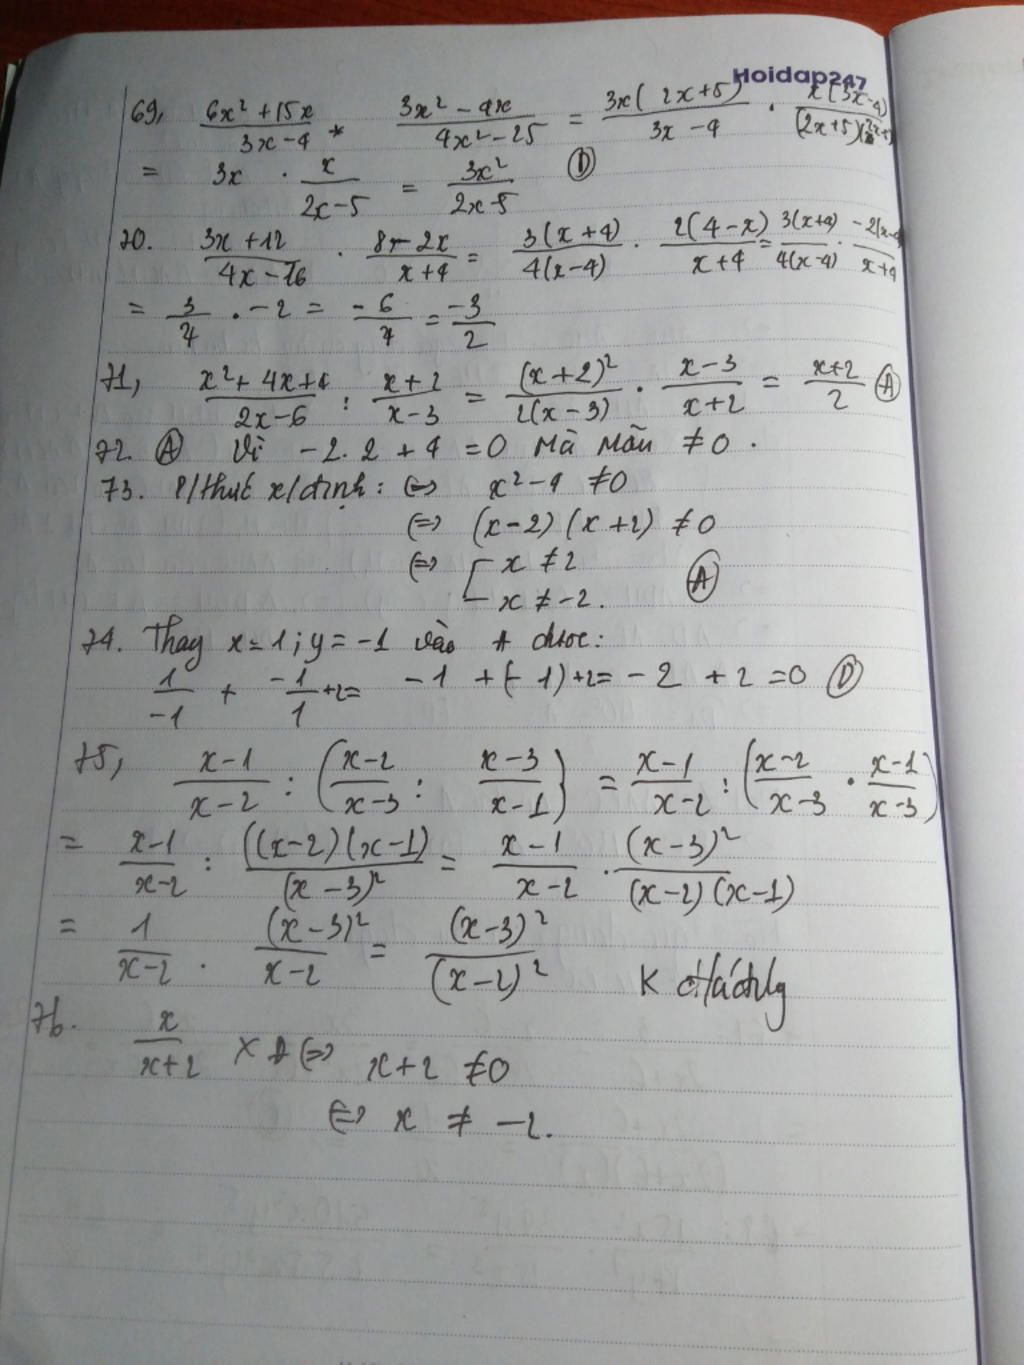 Hoidap247
69, (6x² + 15x)/(3x - 4) * (3x² - 4x)/(4x² - 25) = 3x(2x+5)/(3x - 4) · x(3x-4)/(2x+5)(2x-5)
= 3x · x/(2x-5) = 3x²/(2x-5) (D)
70. (3x + 12)/(4x - 16) · (8 - 2x)/(x+4) = 3(x+4)/4(x-4) · 2(4-x)/(x+4) = 3(x+4)/4(x-4) · -2(x-4)/(x+4)
= 3/4 · -2 = -6/4 = -3/2
71, (x² + 4x + 4)/(2x - 6) : (x+2)/(x-3) = (x+2)²/2(x-3) · (x-3)/(x+2) = (x+2)/2 (A)
72. (A) Vì -2.2 + 4 = 0 Mà Mẫu ≠ 0.
73. P/thức x/định: ⇔ x² - 4 ≠ 0
⇔ (x-2)(x+2) ≠ 0
⇔ [ x ≠ 2
x ≠ -2. (A)
74. Thay x = 1; y = -1 vào A được:
1/-1 + -1/1 + 2 = -1 + (-1) + 2 = -2 + 2 = 0 (D)
75, (x-1)/(x-2) : ((x-2)/(x-3) : (x-3)/(x-1)) = (x-1)/(x-2) : ((x-2)/(x-3) · (x-1)/(x-3))
= (x-1)/(x-2) : ((x-2)(x-1)/(x-3)² = (x-1)/(x-2) · (x-3)²/(x-2)(x-1)
= 1/(x-2) · (x-3)²/(x-2) = (x-3)²/(x-2)² K
76. x/(x+2) XĐ ⇔ x+2 ≠ 0
⇔ x ≠ -2.